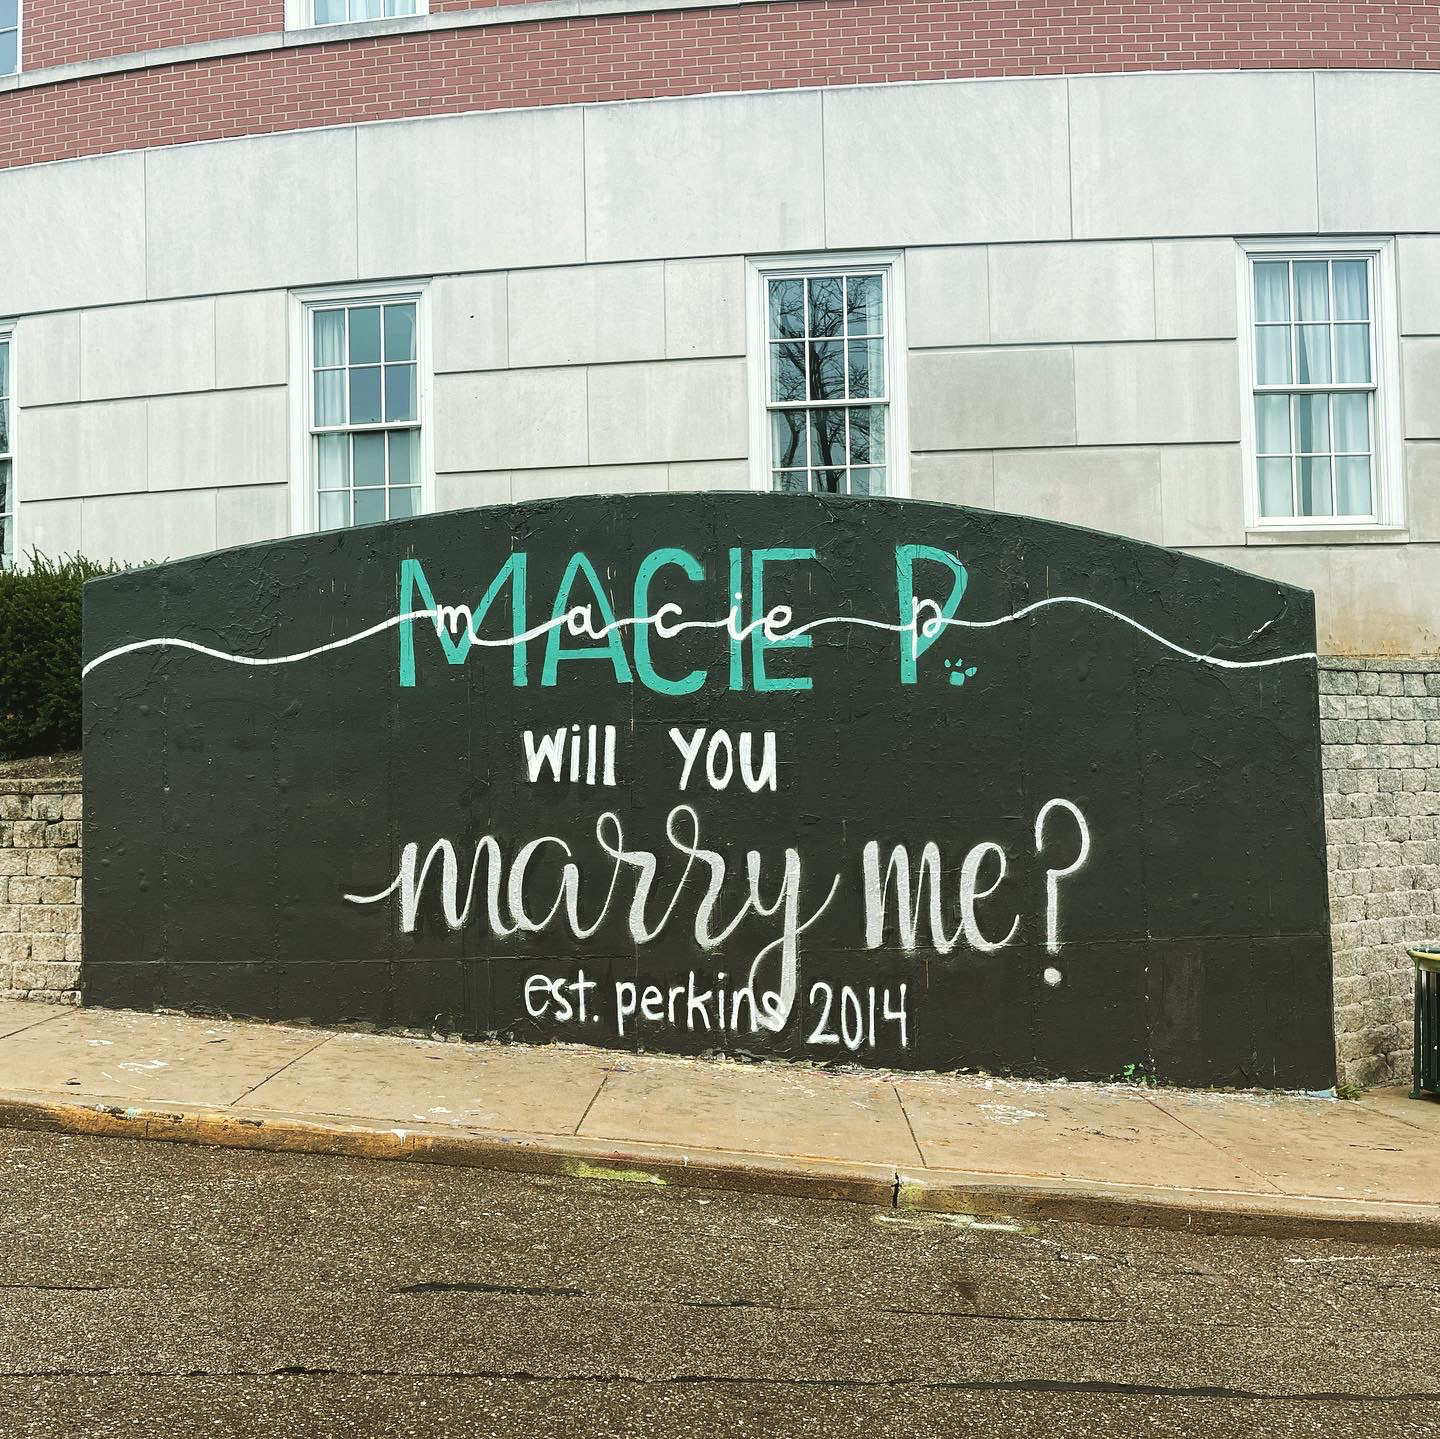 MACIE P.
macie p
will you
marry me?
est. perkins 2014